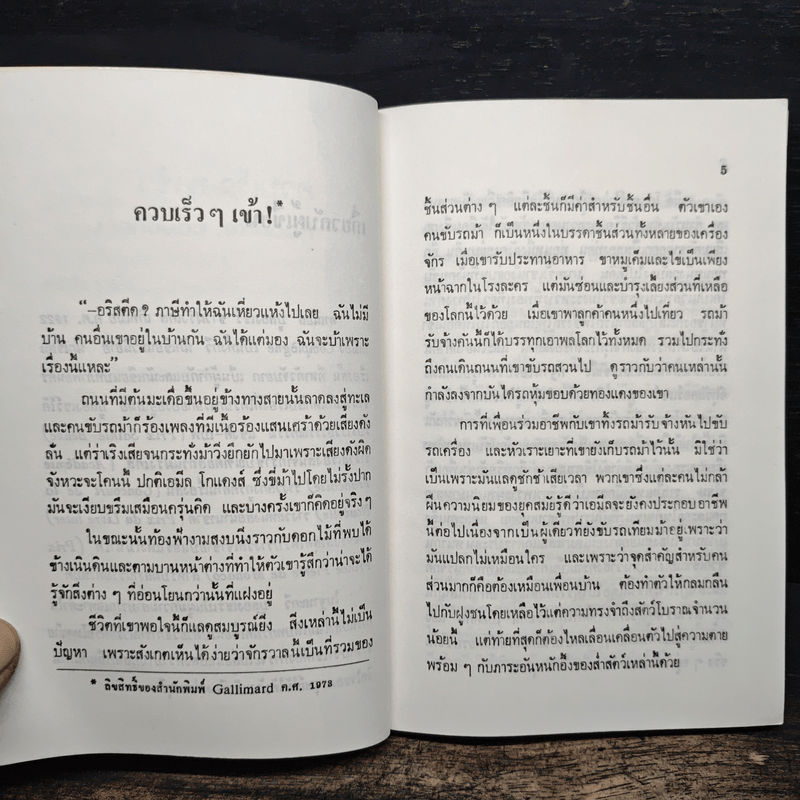 ควบเร็ว ๆ เข้า!*
"—อริสตีด ? ภาษีทำให้ฉันเหี่ยวแห้งไปเลย ฉันไม่มี
บ้าน คนอื่นเขาอยู่ในบ้านกัน ฉันได้แต่มอง ฉันจะบ้าเพราะ
เรื่องนี้แหละ"
ถนนที่มีต้นมะเดื่อขึ้นอยู่ข้างทางสายนั้นลาดลงสู่ทะเล
และคนขับรถม้าก็ร้องเพลงที่มีเนื้อร้องแสนเศร้าด้วยเสียงดัง
ลั่น แต่ร่าเริงเสียจนกระทั่งม้าวิ่งยึกยักไปมาเพราะเสียงดังผิด
จังหวะจะโคนนี้ ปกติเอมีล โกแดงส์ ซึ่งขี่ม้าไปโดยไม่รั้งปาก
มันจะเงียบขรึมเสมือนครุ่นคิด และบางครั้งเขาก็คิดอยู่จริงๆ
ในขณะนั้นท้องฟ้างามสงบนิ่งราวกับดอกไม้ที่พบได้
ข้างเนินดินและตามบานหน้าต่างที่ทำให้ตัวเขารู้สึกว่าน่าจะได้
รู้จักสิ่งต่าง ๆ ที่อ่อนโยนกว่านั้นที่แฝงอยู่
ชีวิตที่เขาพอใจนี้ก็แลดูสมบูรณ์ยิ่ง สิ่งเหล่านี้ไม่เป็น
ปัญหา เพราะสังเกตเห็นได้ง่ายว่าจักรวาลนี้เป็นที่รวมของ
* ลิขสิทธิ์ของสำนักพิมพ์ Gallimard ค.ศ. 1973
5
ชิ้นส่วนต่าง ๆ แต่ละชิ้นก็มีค่าสำหรับชิ้นอื่น ตัวเขาเอง
คนขับรถม้า ก็เป็นหนึ่งในบรรดาชิ้นส่วนทั้งหลายของเครื่อง
จักร เมื่อเขารับประทานอาหาร ขาหมูเค็มและไข่เป็นเพียง
หน้าฉากในโรงละคร แต่มันซ่อนและบำรุงเลี้ยงส่วนที่เหลือ
ของโลกนี้ไว้ด้วย เมื่อเขาพาลูกค้าคนหนึ่งไปเที่ยว รถม้า
รับจ้างคันนี้ก็ได้บรรทุกเอาพลโลกไว้ทั้งหมด รวมไปกระทั่ง
ถึงคนเดินถนนที่เขาขับรถสวนไป ดูราวกับว่าคนเหล่านั้น
กำลังลงจากบันไดรถหุ้มขอบด้วยทองแดงของเขา
การที่เพื่อนร่วมอาชีพกับเขาทิ้งรถม้ารับจ้างหันไปขับ
รถเครื่อง และหัวเราะเยาะที่เขายังเก็บรถม้าไว้นั้น มิใช่ว่า
เป็นเพราะมันแลดูชักช้าเสียเวลา พวกเขาซึ่งแต่ละคนไม่กล้า
ฝืนความนิยมของยุคสมัยรู้ดีว่าเอมีลจะยังคงประกอบอาชีพ
นี้ต่อไปเนื่องจากเป็นผู้เดียวที่ยังขับรถเทียมม้าอยู่เพราะว่า
มันแปลกไม่เหมือนใคร และเพราะว่าจุดสำคัญสำหรับคน
ส่วนมากก็คือต้องเหมือนเพื่อนบ้าน ต้องทำตัวให้กลมกลืน
ไปกับฝูงชนโดยเหลือไว้แต่ความทรงจำถึงสัตว์โบราณจำนวน
น้อยนี้ แต่ท้ายที่สุดก็ต้องไหลเลื่อนเคลื่อนตัวไปสู่ความตาย
พร้อม ๆ กับภาระอันหนักอึ้งของส่ำสัตว์เหล่านี้ด้วย